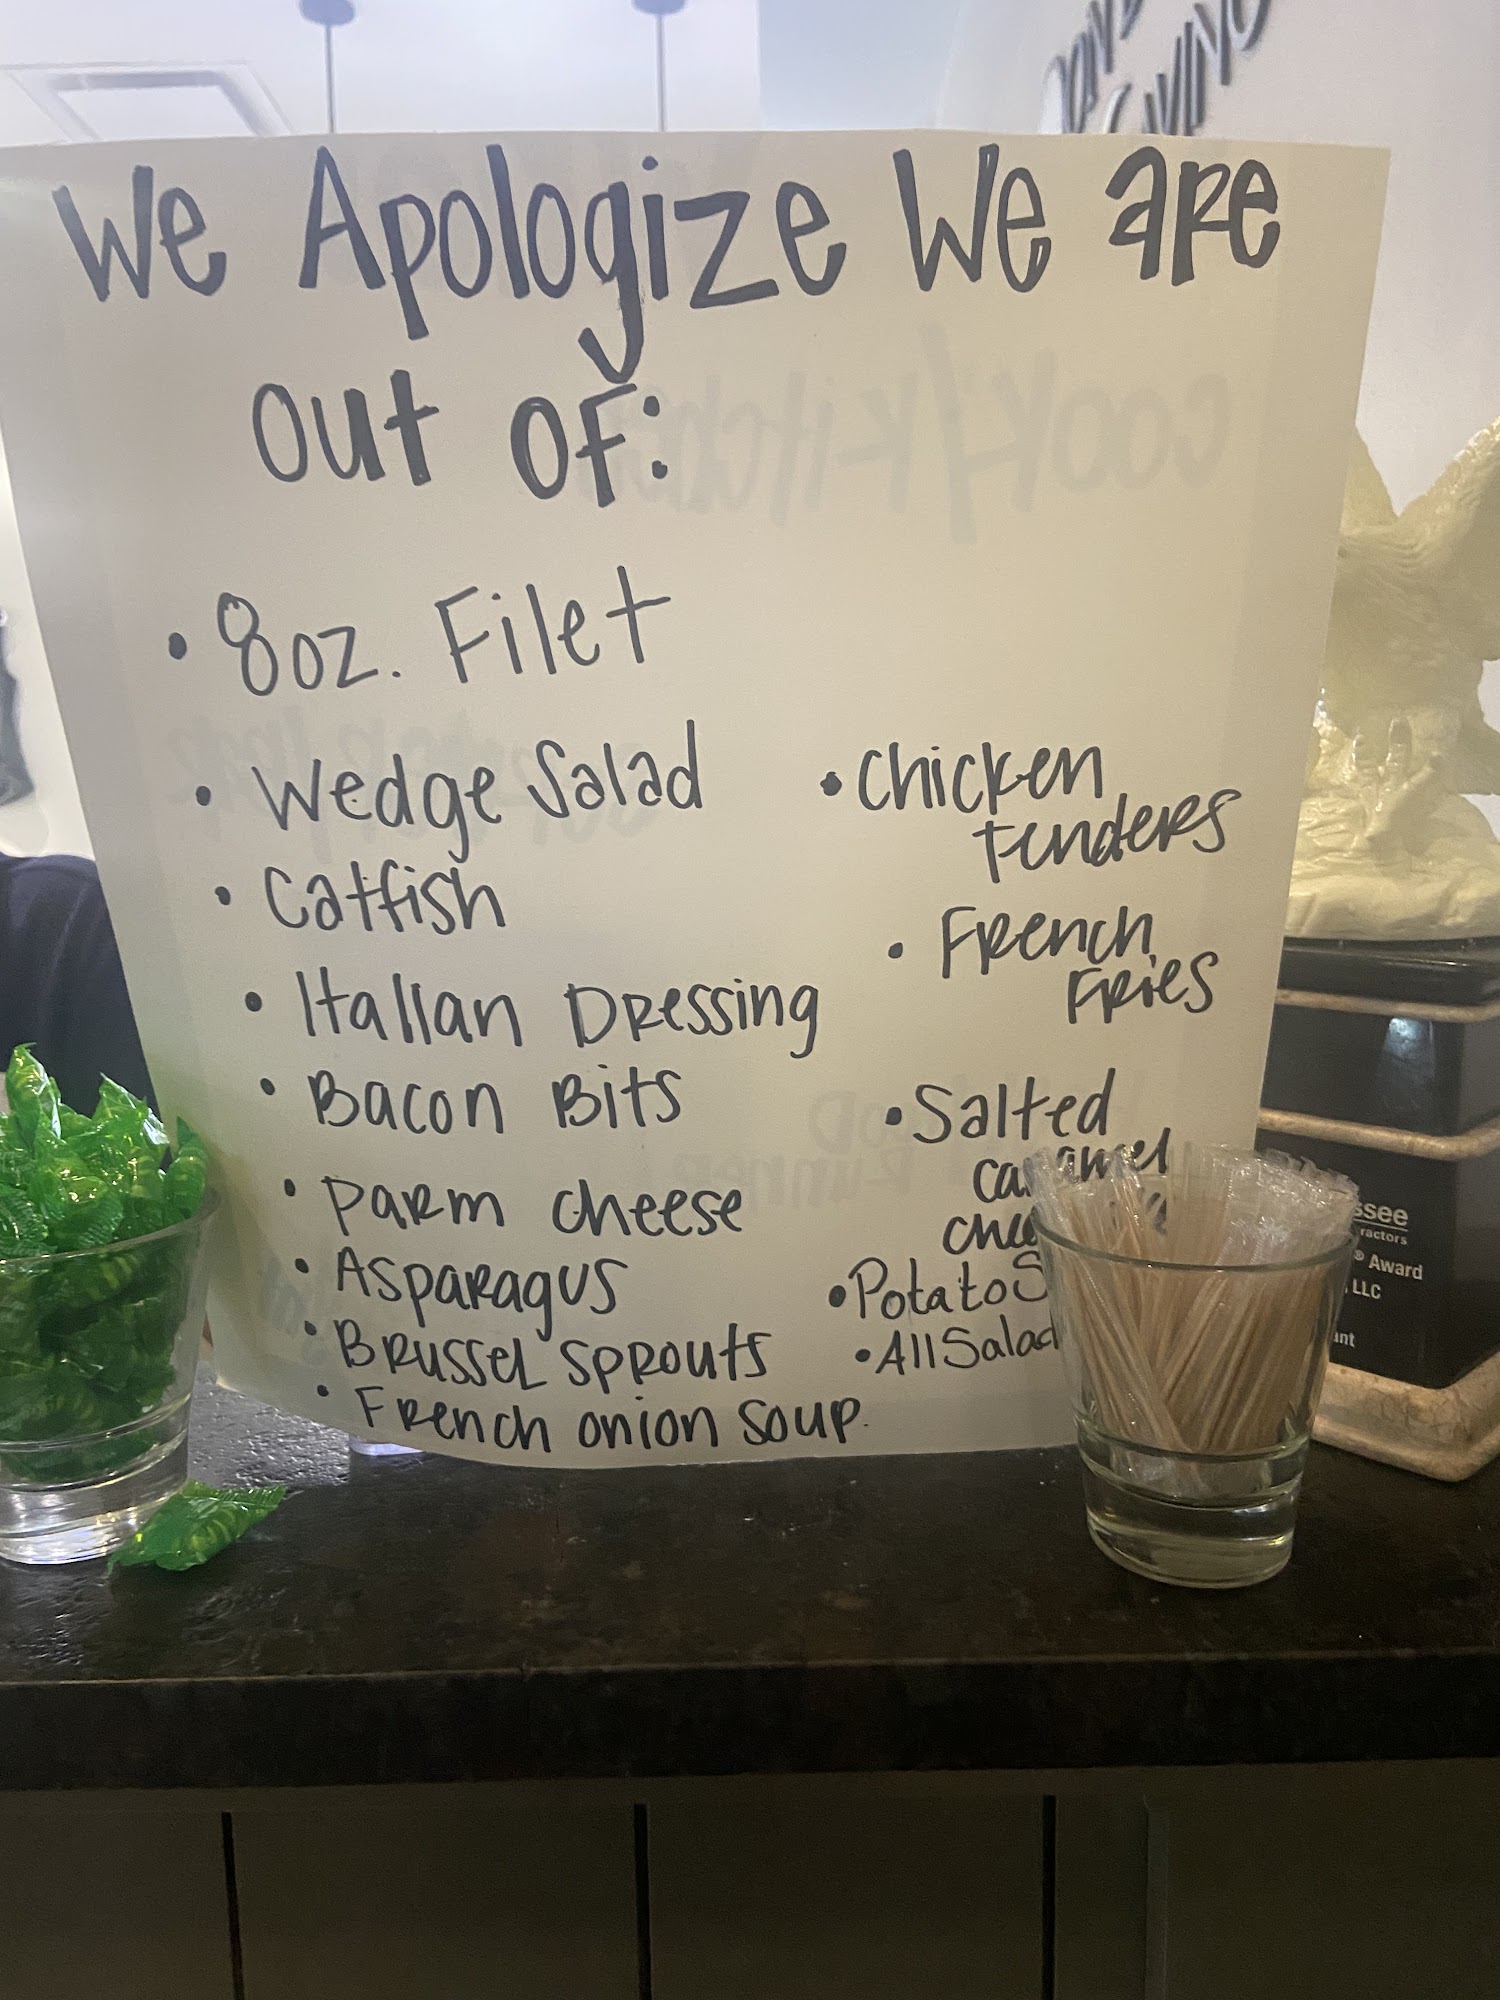 We Apologize We are
out of:
• 8oz. Filet
• Wedge Salad
• Catfish
• Italian Dressing
• Bacon Bits
• Parm cheese
• Asparagus
• Brussel sprouts
• French onion soup.
• Chicken
tenders
• French
Fries
• Salted
caramel
• Potato
• All Salad
ssee
ractors
® Award
LLC